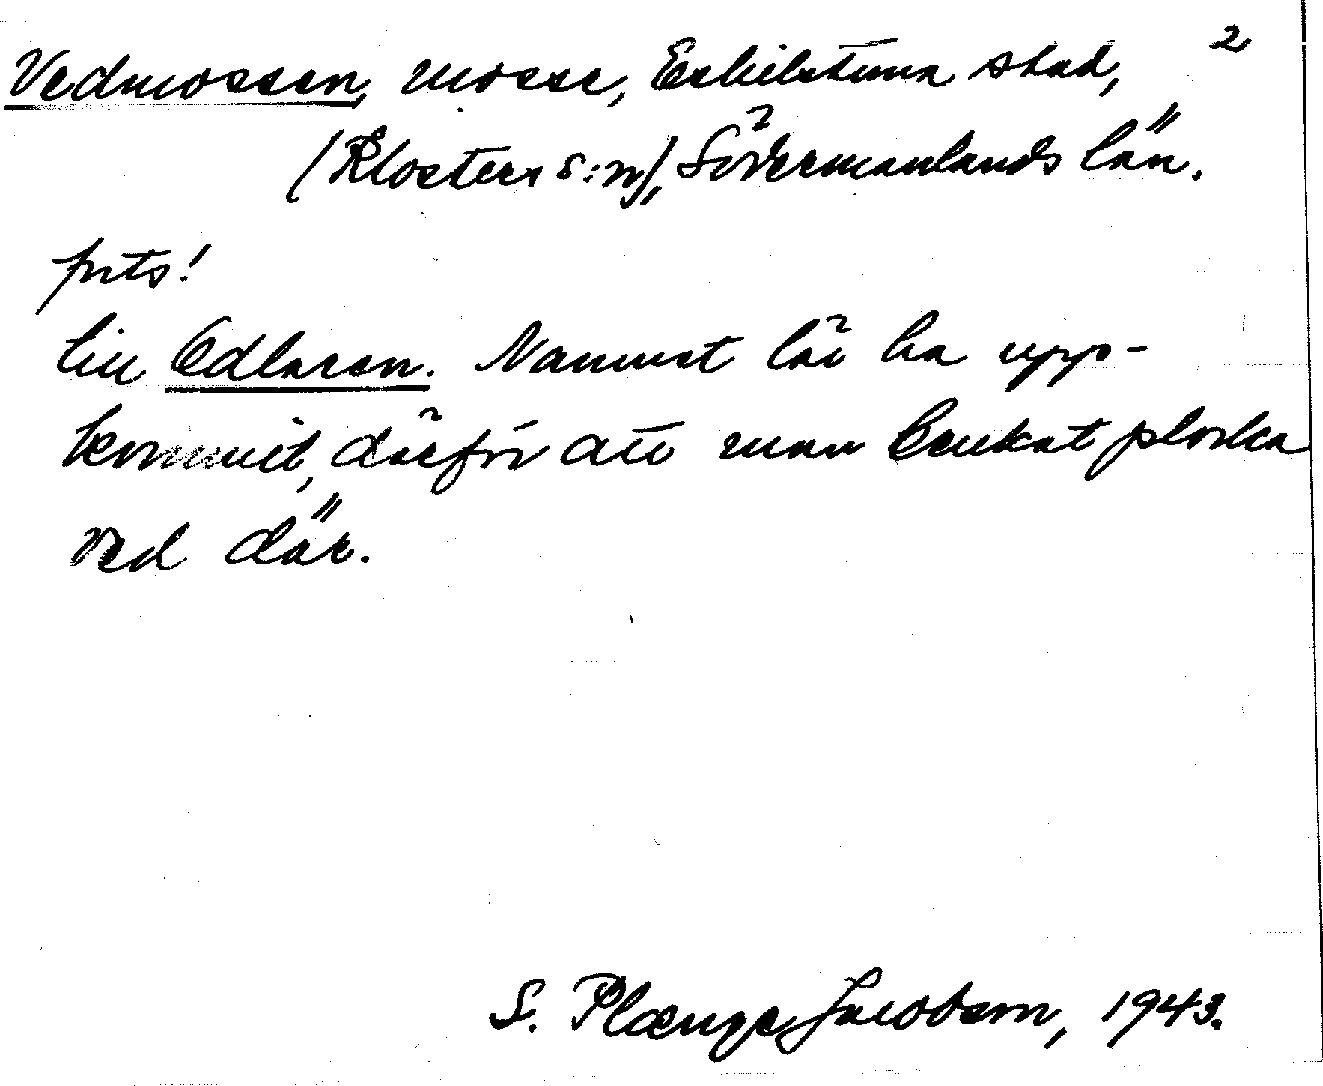 Vedmossen, mosse, Eskilstuna stad, 2
(Klosters s:n), Södermanlands län.
forts!
till Odlaren. Namnet lär ha upp-
kommit, därför att man brukat plocka
ved där.
S. Plænge Jacobson, 1943.